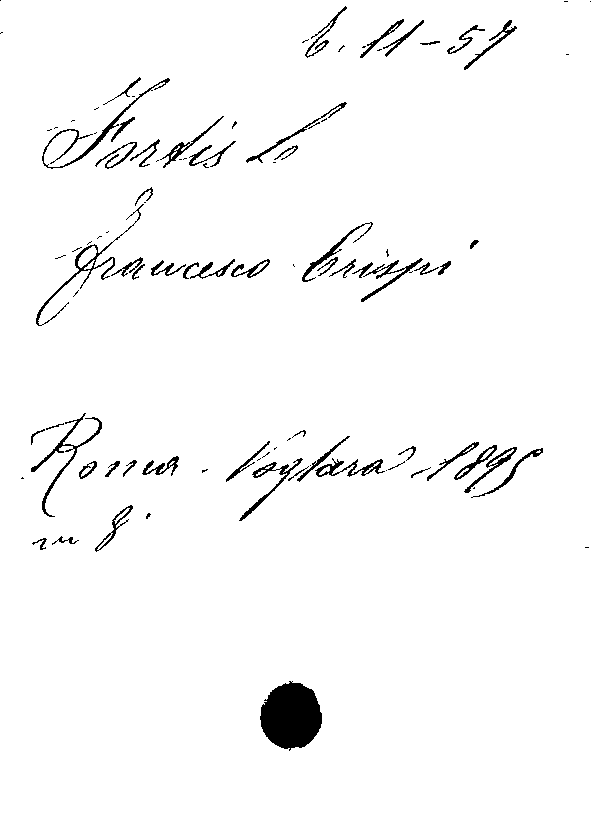 C. 11-57
Fortis L
Francesco Crispi
Roma - Voghera - 1895
in 8.